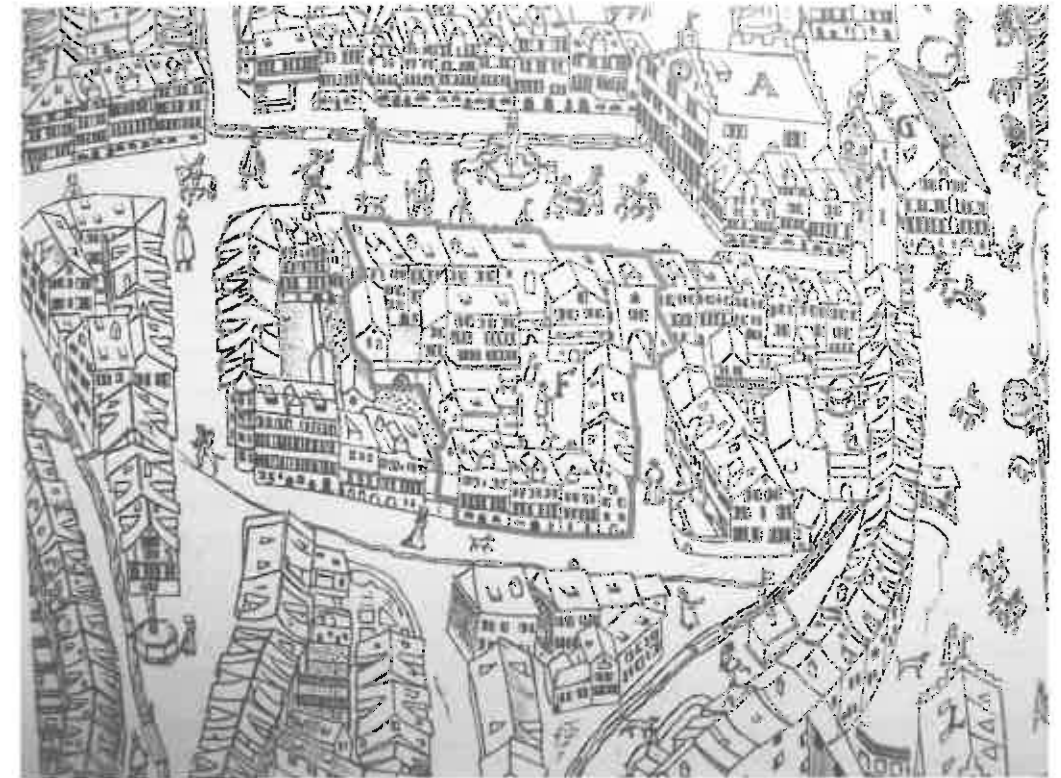 A
G
F